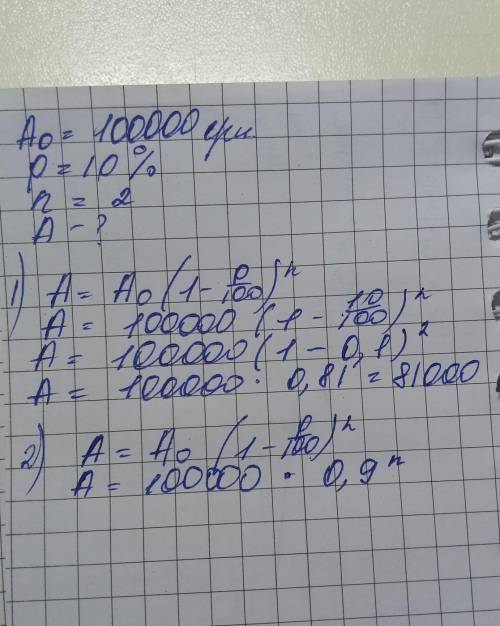 A₀ = 100000 грн.
p = 10%
n = 2
A - ?
1) A = A₀ (1 - p/100)ⁿ
A = 100000 (1 - 10/100)²
A = 100000 (1 - 0,1)²
A = 100000 · 0,81 = 81000
2) A = A₀ (1 - p/100)ⁿ
A = 100000 · 0,9ⁿ